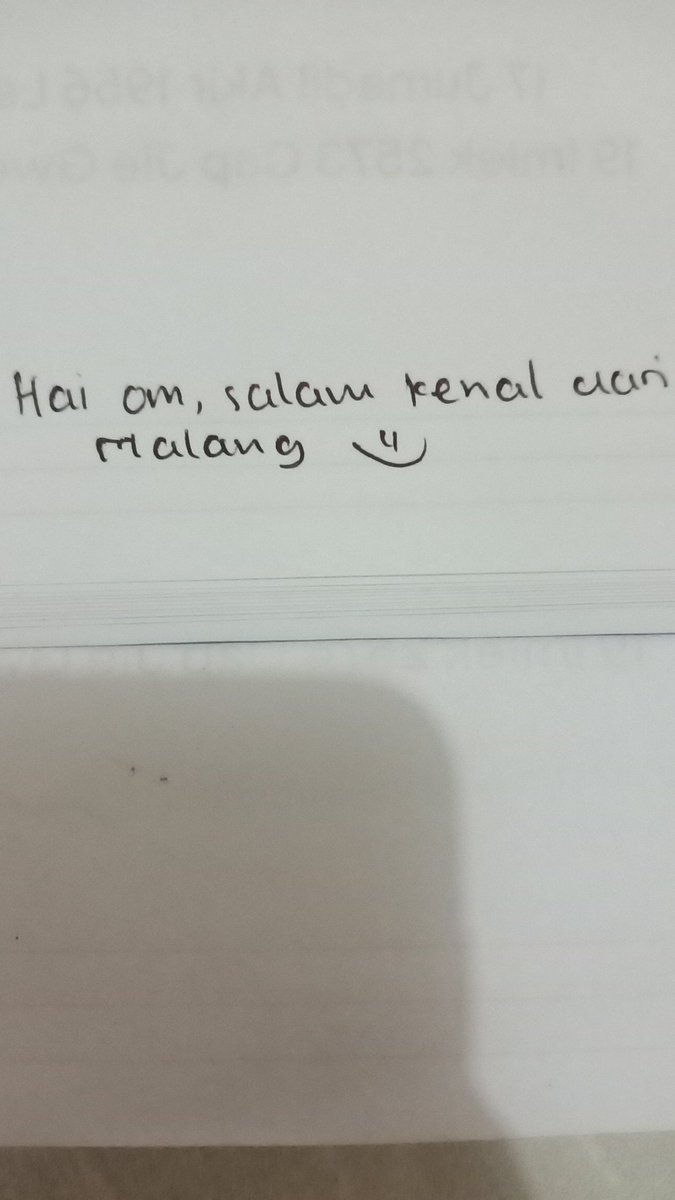 Hai om, salam kenal dari
Malang